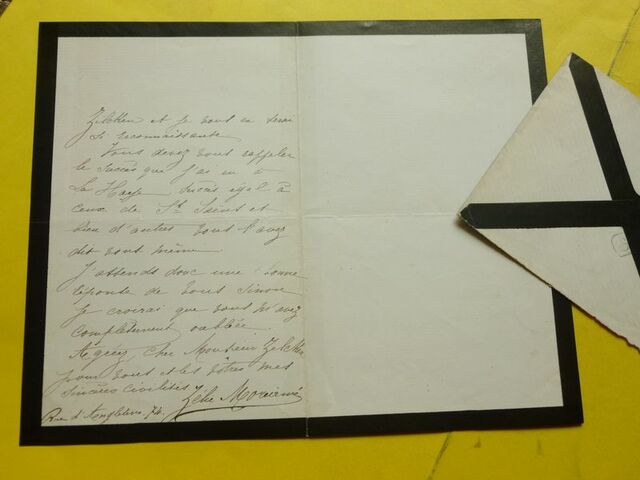 Zilcken et je vous en serai
si reconnaissante
Vous devez vous rappeler
le succès que j'ai eu à
La Haye succès égal à
ceux de St Saens et
bien d'autres vous l'avez
dit vous même
J'attends donc une bonne
réponse de vous sinon
je croirai que vous m'avez
complètement oubliée.
Agréez, cher Monsieur Zilcken
pour vous et les vôtres mes
sincères civilités
Zélie Moriamé
Rue d'Angleterre, 74.